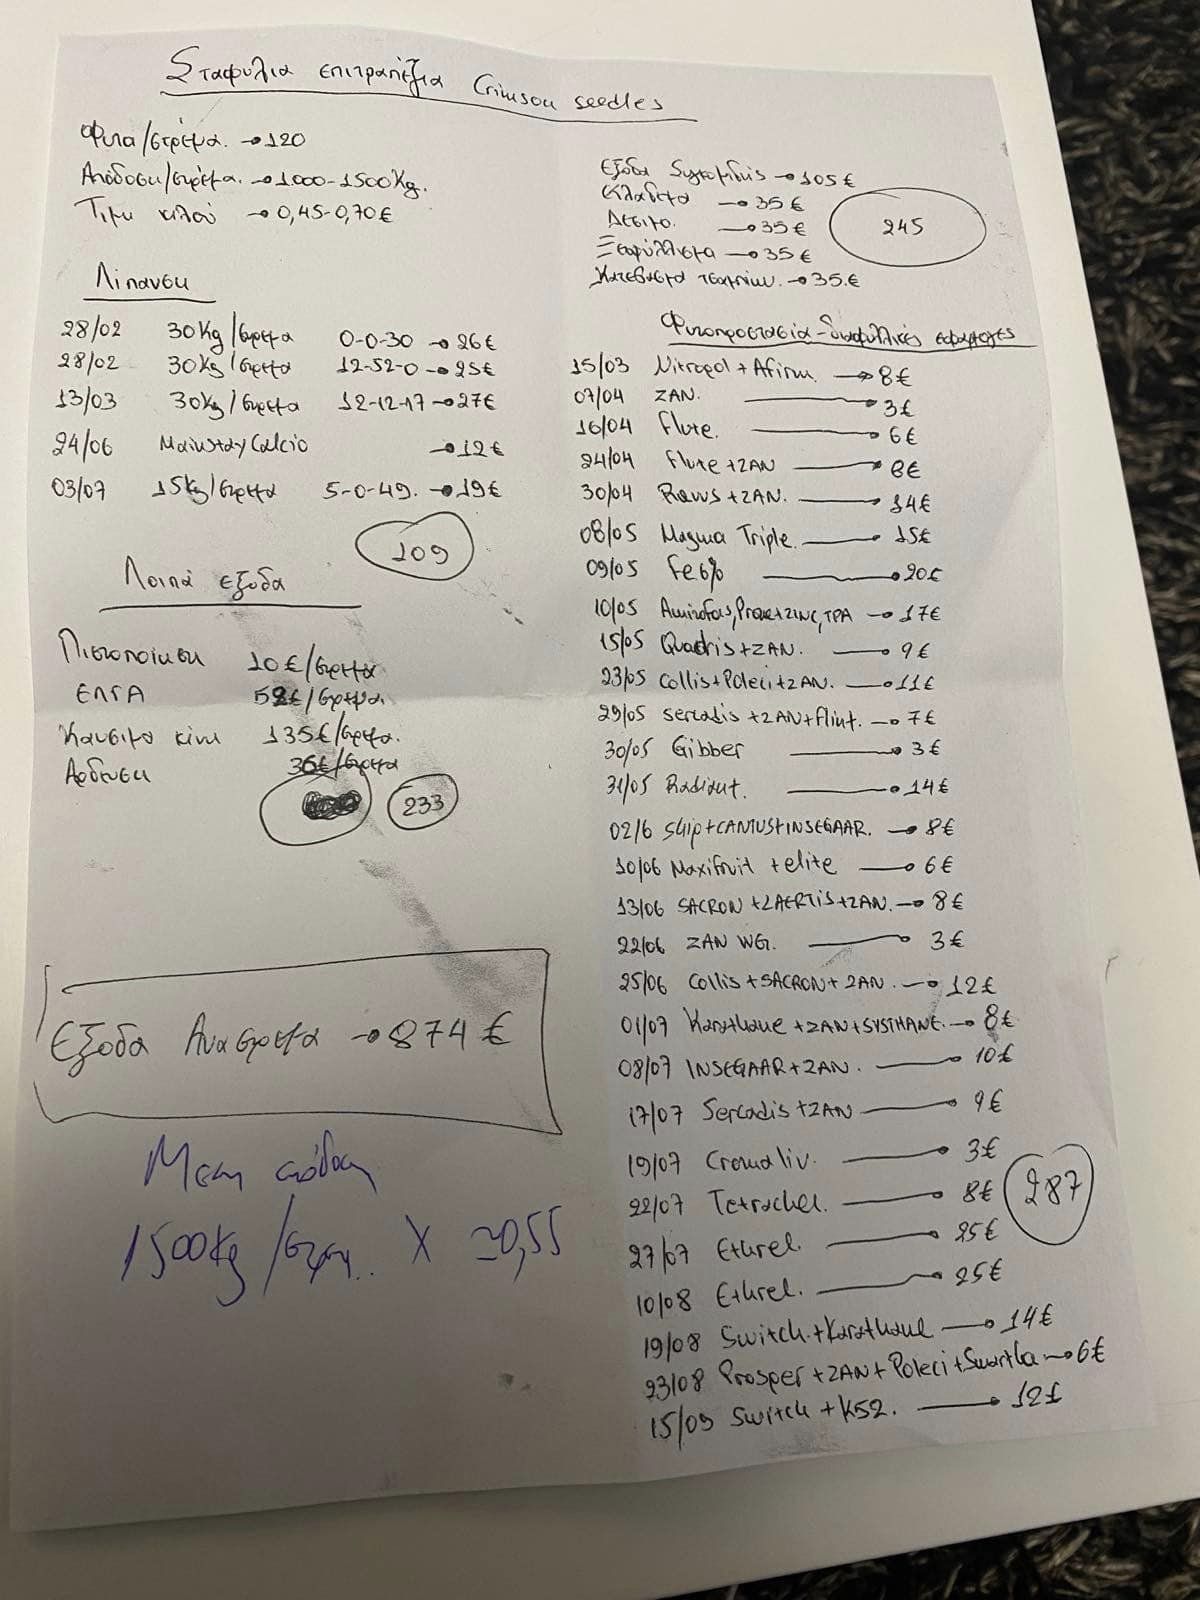 Σταφυλια επιτραπέζια Crimson seedles
Φυτα/στρέμα. → 120
Απόδοση/στρέμα. → 1000-1500Kg.
Τιμη κιλού → 0,45-0,70€
Λιπανση
28/02 30Kg/στρεμα 0-0-30 → 26€
28/02 30Kg/στρεμα 12-52-0 → 25€
13/03 30Kg/στρεμα 12-12-17 → 27€
24/06 Mainstay Calcio → 12€
03/07 15Kg/στρεμα 5-0-49. → 19€
109
Λοιπά εξοδα
Πιστοποιηση 10€/στρεμα
ΕΛΓΑ 52€/στρεμα.
Καυσιμα κινι 135€/στρεμα.
Αρδευση 36€/στρεμα
233
Εξοδα Ανα στρεμα → 874€
Μεση απόδοση
1500Kg/στρεμ. X ≃0,55
Εξοδα Συγκομιδης → 105€
Κλαδεμα → 35€
Δεσιμο. → 35€
Ξεφύλλισμα → 35€
Κατεβασμα τσαμπιων. → 35€
245
Φυτοπροστασία-διαφυλλικές εφαρμογες
15/03 Nitropol + Afirm. → 8€
07/04 ZAN. → 3€
16/04 Flute. → 6€
24/04 Flute + ZAN → 8€
30/04 Reuus + ZAN. → 14€
08/05 Magma Triple. → 15€
09/05 Fe6% → 20€
10/05 Aminofas, Prone+ZINC, TPA → 17€
15/05 Quadris + ZAN. → 9€
23/05 Collis + Poleci + ZAN. → 11€
29/05 sercadis + ZAN + Flint. → 7€
30/05 Gibber → 3€
31/05 Radiant. → 14€
02/6 Skip + CANTUS + INSEGAAR. → 8€
10/06 Maxifruit + elite → 6€
13/06 SACRON + LAERTIS + ZAN. → 8€
22/06 ZAN WG. → 3€
25/06 Collis + SACRON + ZAN. → 12€
01/07 Karathane + ZAN + SYSTHANE. → 8€
08/07 INSEGAAR + ZAN. → 10€
17/07 Sercadis + ZAN → 9€
19/07 Cromaliv. → 3€
22/07 Tetrachel. → 8€
287
27/07 Ethrel. → 25€
10/08 Ethrel. → 25€
19/08 Switch + Karathane → 14€
23/08 Prosper + ZAN + Poleci + Smartha → 6€
15/09 Switch + K52. → 12€